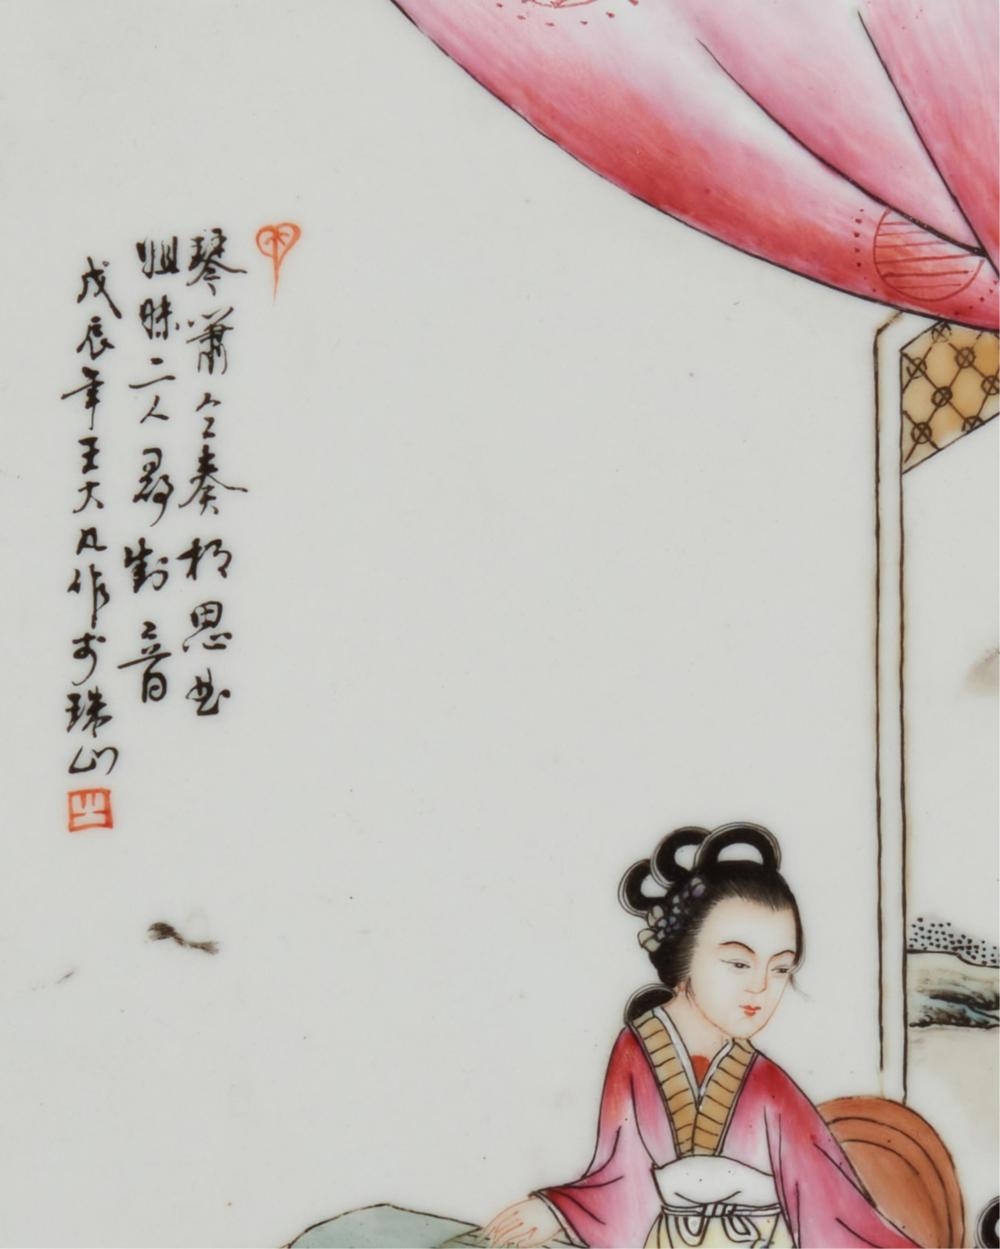 琴簫合奏相思曲
姐妹二人尋對音
戊辰年王大凡作于珠山